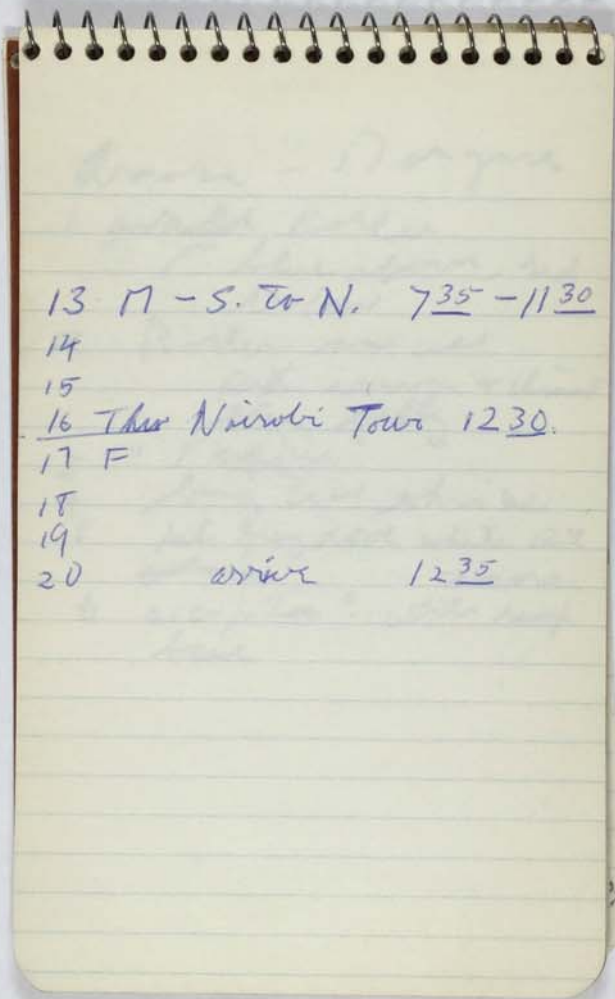 13 M - S. to N. 7 35 - 11 30
14
15
16 Thur Nairobi Tour 12 30.
17 F
18
19
20 arrive 12 35